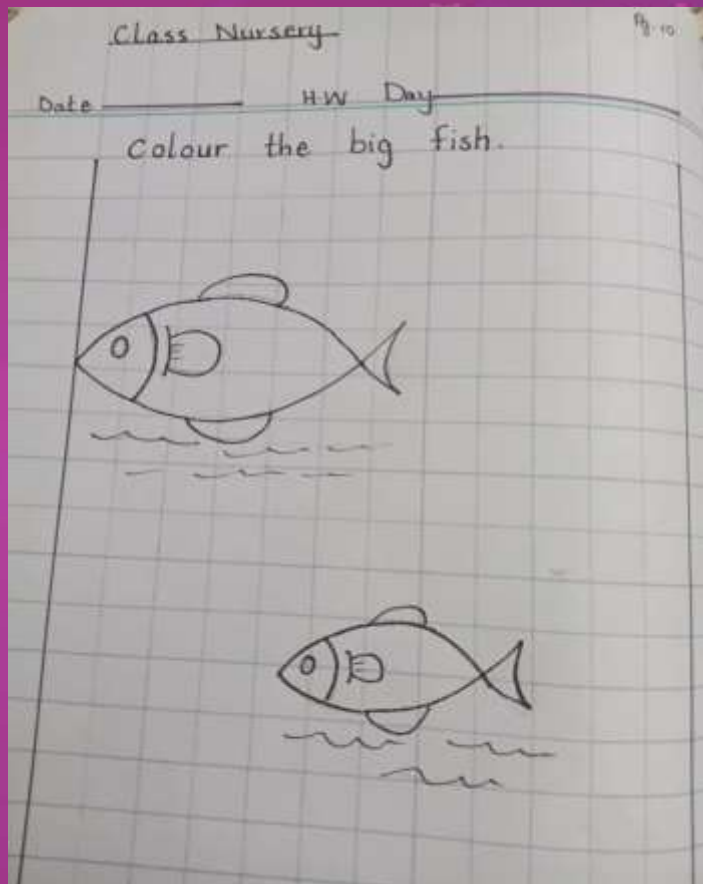 Class Nursery
Pg.10
Date H.W Day
Colour the big fish.